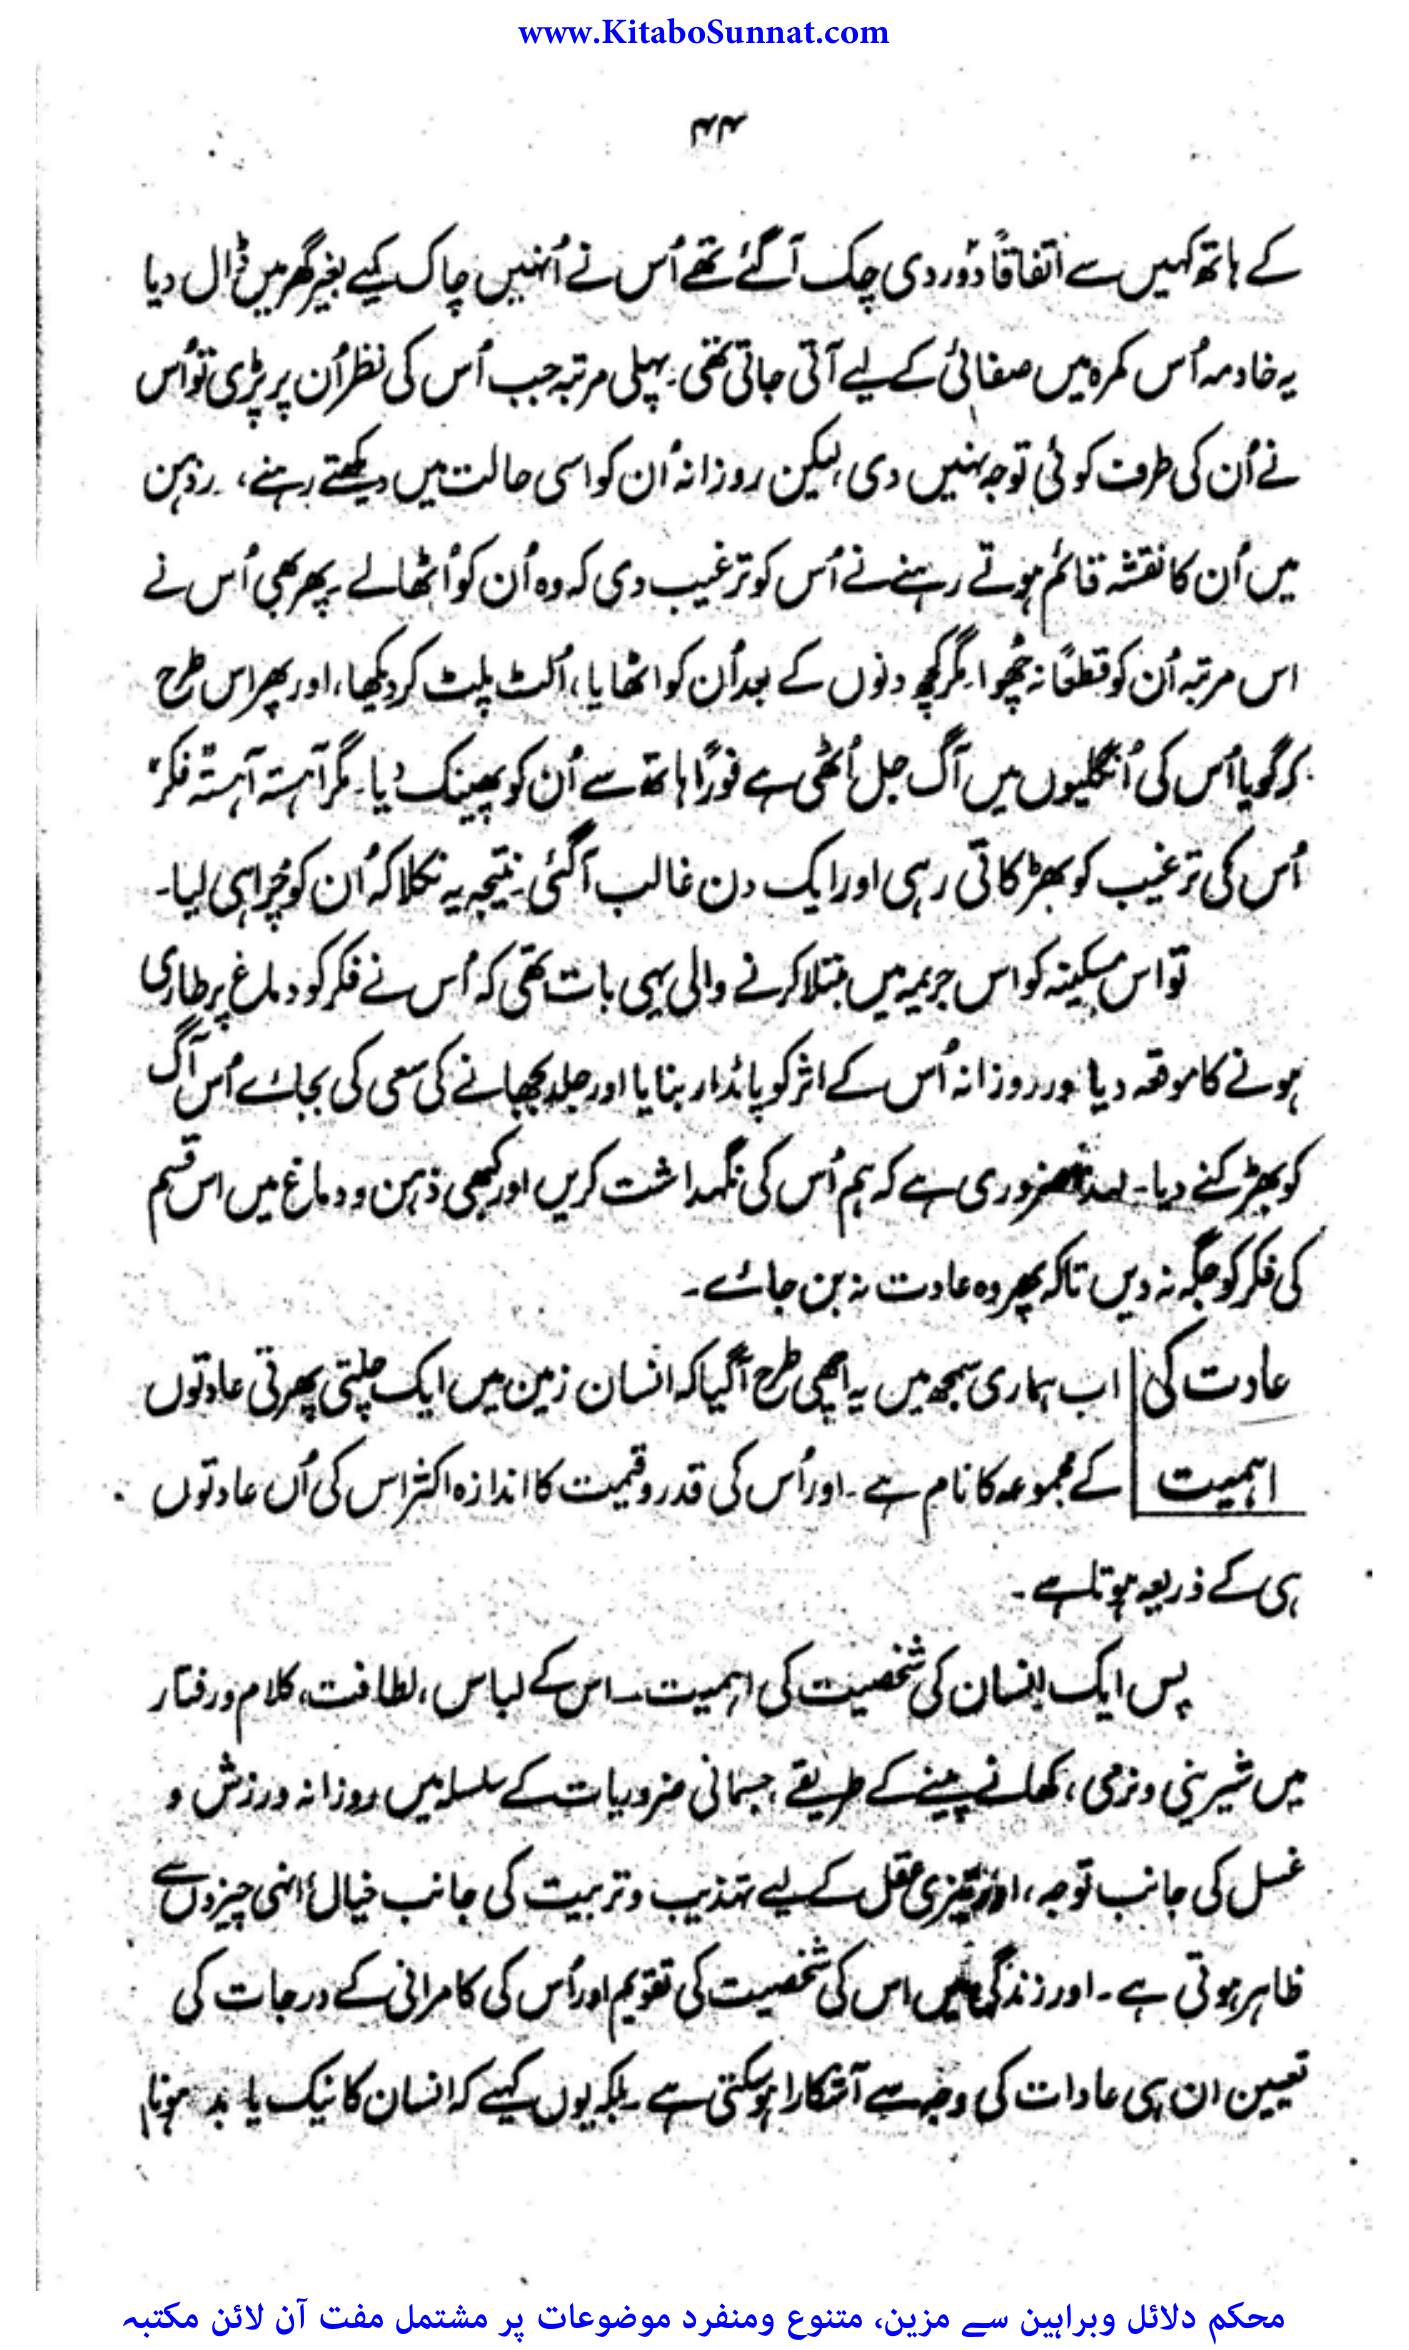 www.KitaboSunnat.com
۴۴
کے ہاتھ کہیں سے اتفاقاً دو ردی چک آگئے تھے اُس نے اُنہیں چاک کیے بغیر گھر میں ڈال دیا
یہ خادمہ اُس کمرہ میں صفائی کے لیے آتی جاتی تھی۔ پہلی مرتبہ جب اُس کی نظر اُن پر پڑی تو اُس
نے اُن کی طرف کوئی توجہ نہیں دی، لیکن روزانہ اُن کو اسی حالت میں دیکھتے رہنے، ذہن
میں اُن کا نقشہ قائم ہوتے رہنے نے اُس کو ترغیب دی کہ وہ اُن کو اُٹھا لے پھر بھی اُس نے
اس مرتبہ اُن کو قطعًا نہ چھُوا۔ مگر کچھ دنوں کے بعد اُن کو اٹھایا، اُلٹ پلٹ کر دیکھا، اور پھر اس طرح
کہ گویا اُس کی اُنگلیوں میں آگ جل اُٹھی ہے فورًا ہاتھ سے اُن کو پھینک دیا۔ مگر آہستہ آہستہ فکر
اُس کی ترغیب کو بھڑکاتی رہی اور ایک دن غالب آگئی۔ نتیجہ یہ نکلا کہ اُن کو چُرا ہی لیا۔
تو اس مسکینہ کو اس جریمہ میں مبتلا کرنے والی یہی بات تھی کہ اُس نے فکر کو دماغ پر طاری
ہونے کا موقعہ دیا اور روزانہ اُس کے اثر کو پائدار بنایا اور جلد بجھانے کی سعی کی بجائے اُس آگ
کو بھڑکنے دیا۔ لہذا ضروری ہے کہ ہم اُس کی نگہداشت کریں اور کبھی ذہن و دماغ میں اس قسم
کی فکر کو جگہ نہ دیں تاکہ پھر وہ عادت نہ بن جائے۔
عادت کی اب ہماری سمجھ میں یہ اچھی طرح آگیا کہ انسان زمین میں ایک چلتی پھرتی عادتوں
اہمیت کے مجموعہ کا نام ہے۔ اور اُس کی قدر و قیمت کا اندازہ اکثر اس کی اُن عادتوں
ہی کے ذریعہ ہوتا ہے۔
پس ایک انسان کی شخصیت کی اہمیت۔ اس کے لباس، لطافت، کلام و رفتار
میں شیرینی و نرمی، کھانے پینے کے طریقے، جسمانی ضروریات کے سلسلہ میں روزانہ ورزش و
غسل کی جانب توجہ، اور تیزی عقل کے لیے تہذیب و تربیت کی جانب خیال انہی چیزوں سے
ظاہر ہوتی ہے۔ اور زندگی میں اس کی شخصیت کی تقویم اور اُس کی کامرانی کے درجات کی
تعیین ان ہی عادات کی وجہ سے آشکارا ہو سکتی ہے۔ بلکہ یوں کہیے کہ انسان کا نیک یا بد ہونا
محکم دلائل وبراہین سے مزین، متنوع ومنفرد موضوعات پر مشتمل مفت آن لائن مکتبہ